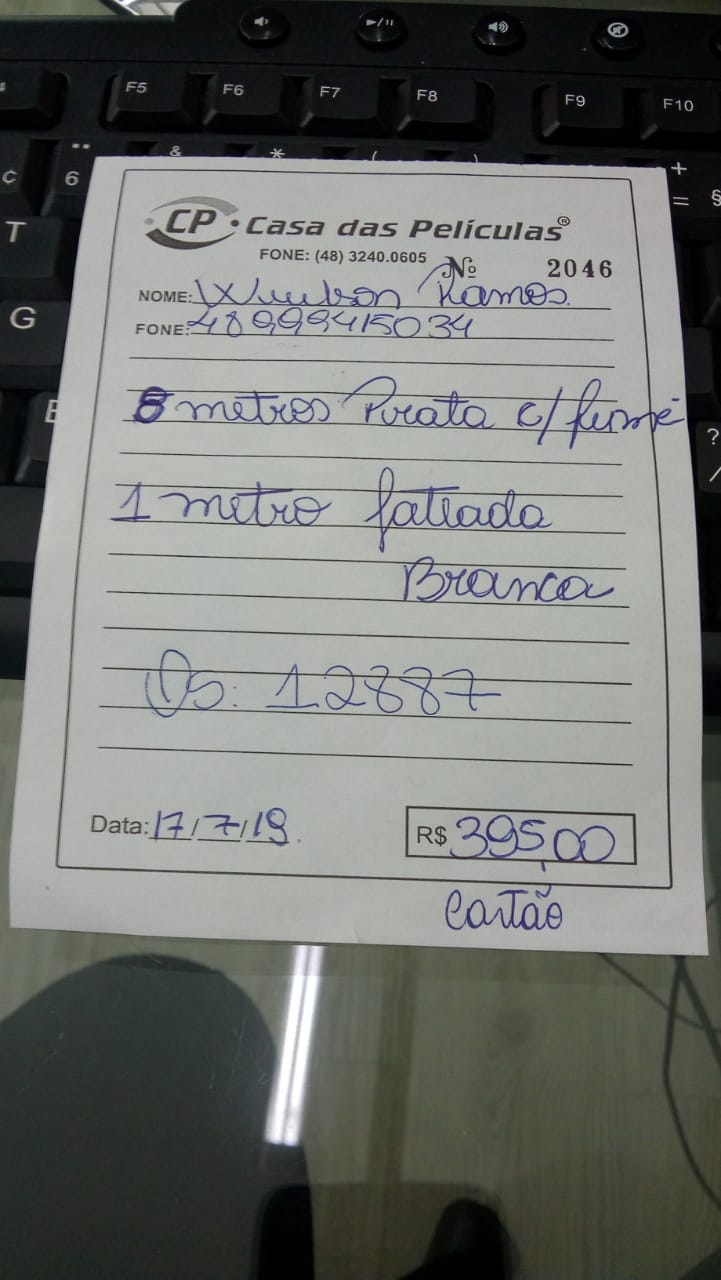 F5 F6 F7 F8 F9 F10
& * ( ) +
6 = §
T
G
? /
CP • Casa das Películas®
FONE: (48) 3240.0605 Nº 2046
NOME: Ramos.
FONE: 48999415034
8 metros Prata c/ fumê
1 metro fateada
Branca
Os: 12887
Data: 17/7/19.
R$ 395,00
Cartão